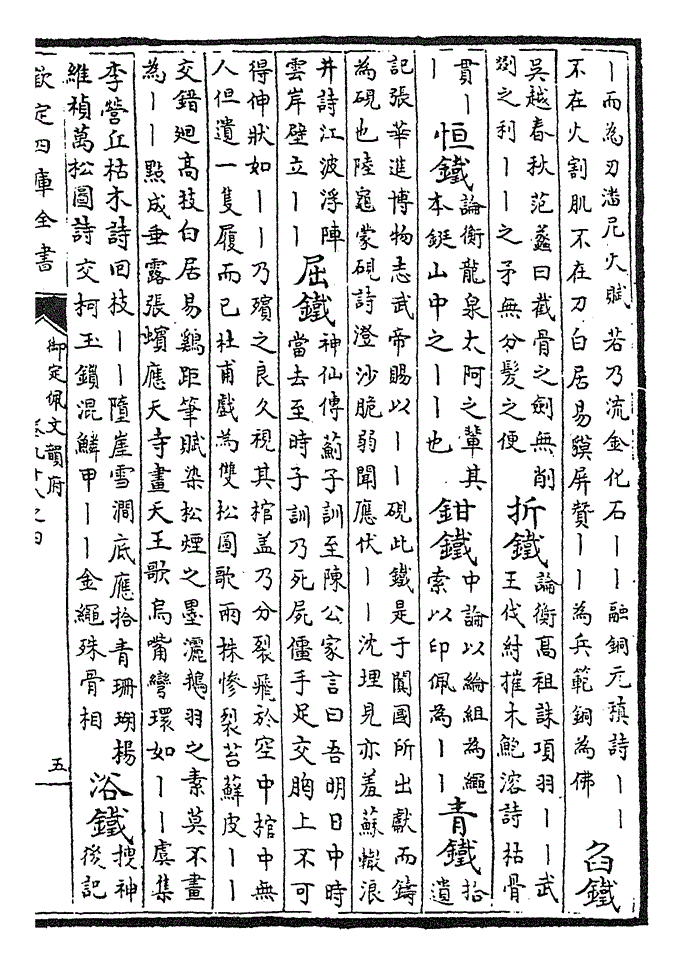 ｜而為刃潘尼火賦若乃流金化石｜｜融銅元稹詩｜｜
不在火割肌不在刀白居易貘屏贊｜｜為兵範銅為佛
臽鐵
吳越春秋范蠡曰截骨之劍無削
剟之利｜｜之矛無分髮之便
折鐵
論衡高祖誅項羽｜｜武
王伐紂摧木鮑溶詩枯骨
貫｜
｜
恒鐵
論衡龍泉太阿之輩其
本鋌山中之｜｜也
鉗鐵
中論以綸組為繩
索以印佩為｜｜
青鐵
拾
遺
記張華進博物志武帝賜以｜｜硯此鐵是于闐國所出獻而鑄
為硯也陸龜蒙硯詩澄沙脆弱聞應伏｜｜沈埋見亦羞蘇轍浪
井詩江波浮陣
雲岸壁立｜｜
屈鐵
神仙傳薊子訓至陳公家言曰吾明日中時
當去至時子訓乃死屍僵手足交胸上不可
得伸狀如｜｜乃殯之良久視其棺盖乃分裂飛於空中棺中無
人但遺一隻履而已杜甫戲為雙松圖歌兩株慘裂苔蘚皮｜｜
交錯廻高枝白居易鷄距筆賦染松煙之墨灑鵝羽之素莫不畫
為｜｜點成垂露張蠙應天寺畫天王歌烏嘴彎環如｜｜虞集
李營丘枯木詩回枝｜｜墮崖雪澗底應拾青珊瑚楊
維禎萬松圖詩交柯玉鎖混鱗甲｜｜金繩殊骨相
浴鐵
搜神
後記
欽定四庫全書
御定佩文韻府
卷九十八之四
五